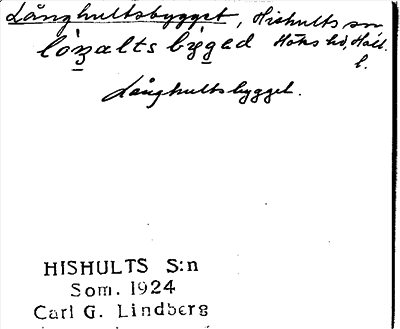 Långhultsbygget, Hishults sn
lóŋalts býged Höks hd, Hall.
l.
Långhultsbygget.
HISHULTS S:n
Som. 1924
Carl G. Lindberg